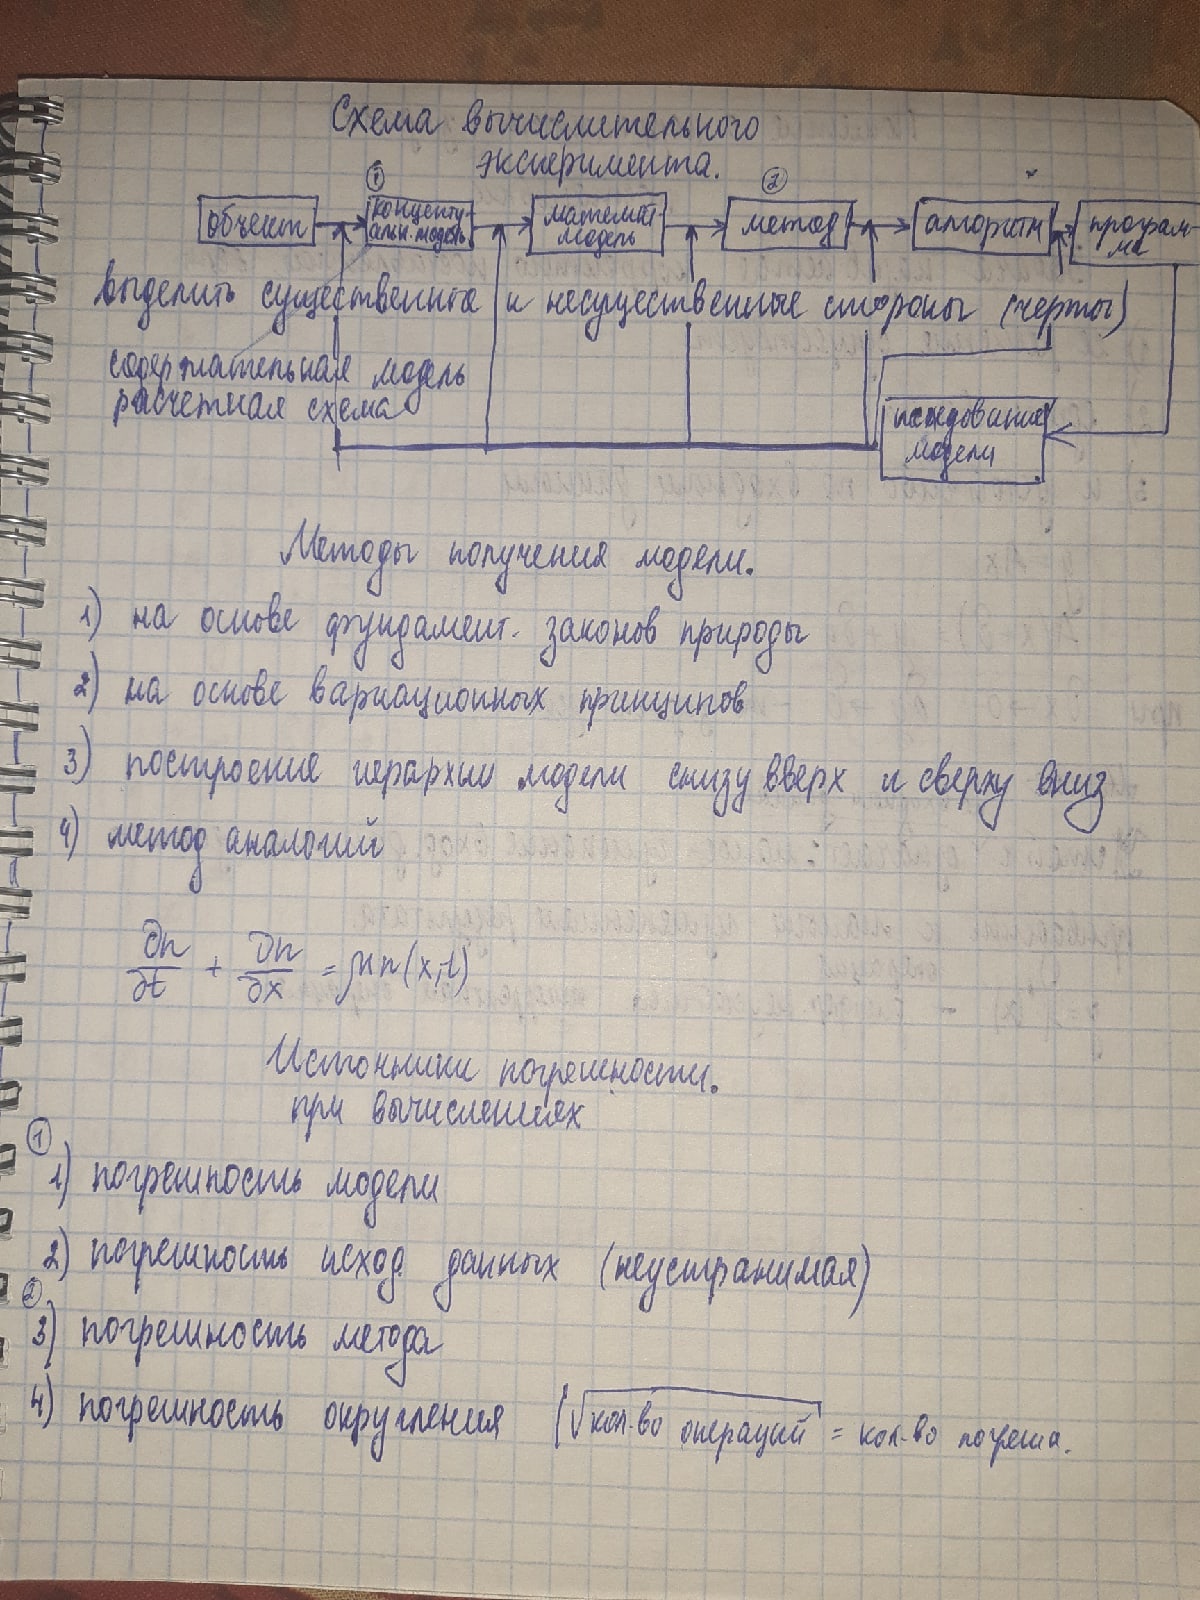 Схема вычислительного
эксперимента.
① ②
объект концепту- математ метод алгоритм програм-
альн. модель модель ма
выделить существенные и несущественные стороны (черты)
содержательная модель
расчетная схема
исследование
модели
Методы получения модели.
1) на основе фундамент. законов природы
2) на основе вариационных принципов
3) построение иерархии модели снизу вверх и сверху вниз
4) метод аналогий
∂n/∂t + ∂n/∂x = n(x,t)
Источники погрешности.
при вычислениях
①
1) погрешность модели
2) погрешность исход. данных (неустранимая)
②
3) погрешность метода
4) погрешность округления (√кол-во операций = кол-во погреш.